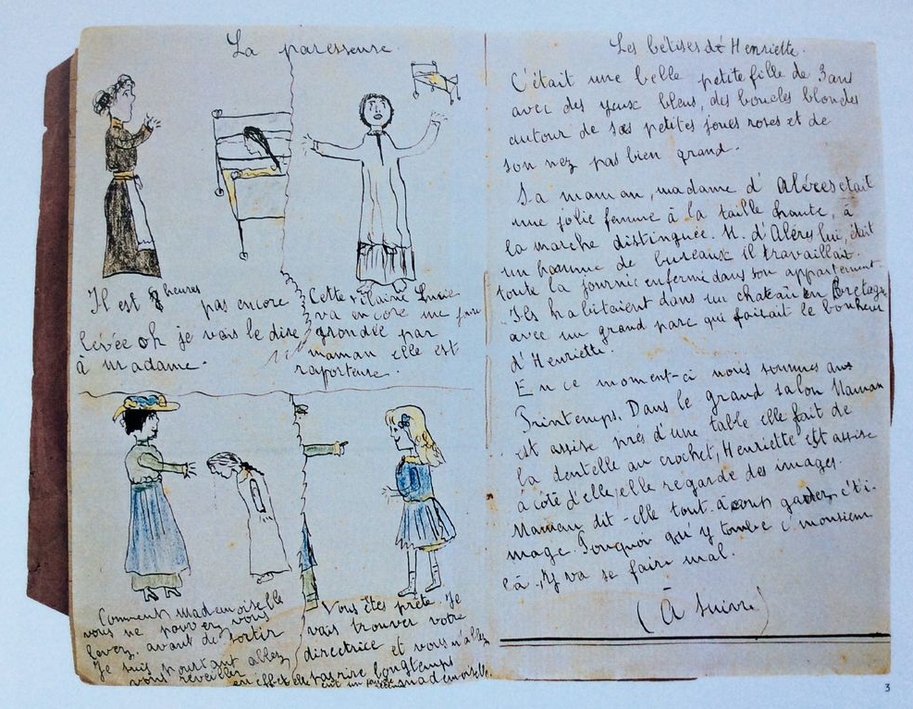 La paresseuse.
Il est 8 heures pas encore
levée oh je vais le dire
à madame.
Cette vilaine Lucie
va encore me faire
grondée par
maman elle est
raporteuse.
Comment mademoiselle
vous ne pouvez vous
lavez, avant de sortir
Je suis pourtant allez
vous réveiller
Vous êtes prête. Je
vais trouver votre
directrice et vous n'allez
pas rire longtemps
mademoiselle.
Les bêtises d'Henriette.
C'était une belle petite fille de 3 ans
avec des yeux bleus, des boucles blondes
autour de ses petites joues roses et de
son nez pas bien grand.
Sa maman, madame d'Aléres était
une jolie femme à la taille haute, à
la marche distinguée. M. d'Aléry lui, était
un homme de bureaux il travaillait
toute la journée enfermé dans son appartement.
Ils habitaient dans un chateau en Bretagne
avec un grand parc qui faisait le bonheur
d'Henriette.
En ce moment-ci nous sommes aux
Printemps. Dans le grand salon Maman
est assise près d'une table elle fait de
la dentelle au crochet, Henriette est assise
à côté d'elle, elle regarde des images.
Maman dit-elle tout à coup gardez c'ti-
mage. Pouquoi qu'y tombe c'monsieur
là. Y va se faire mal.
(À suivre)
3